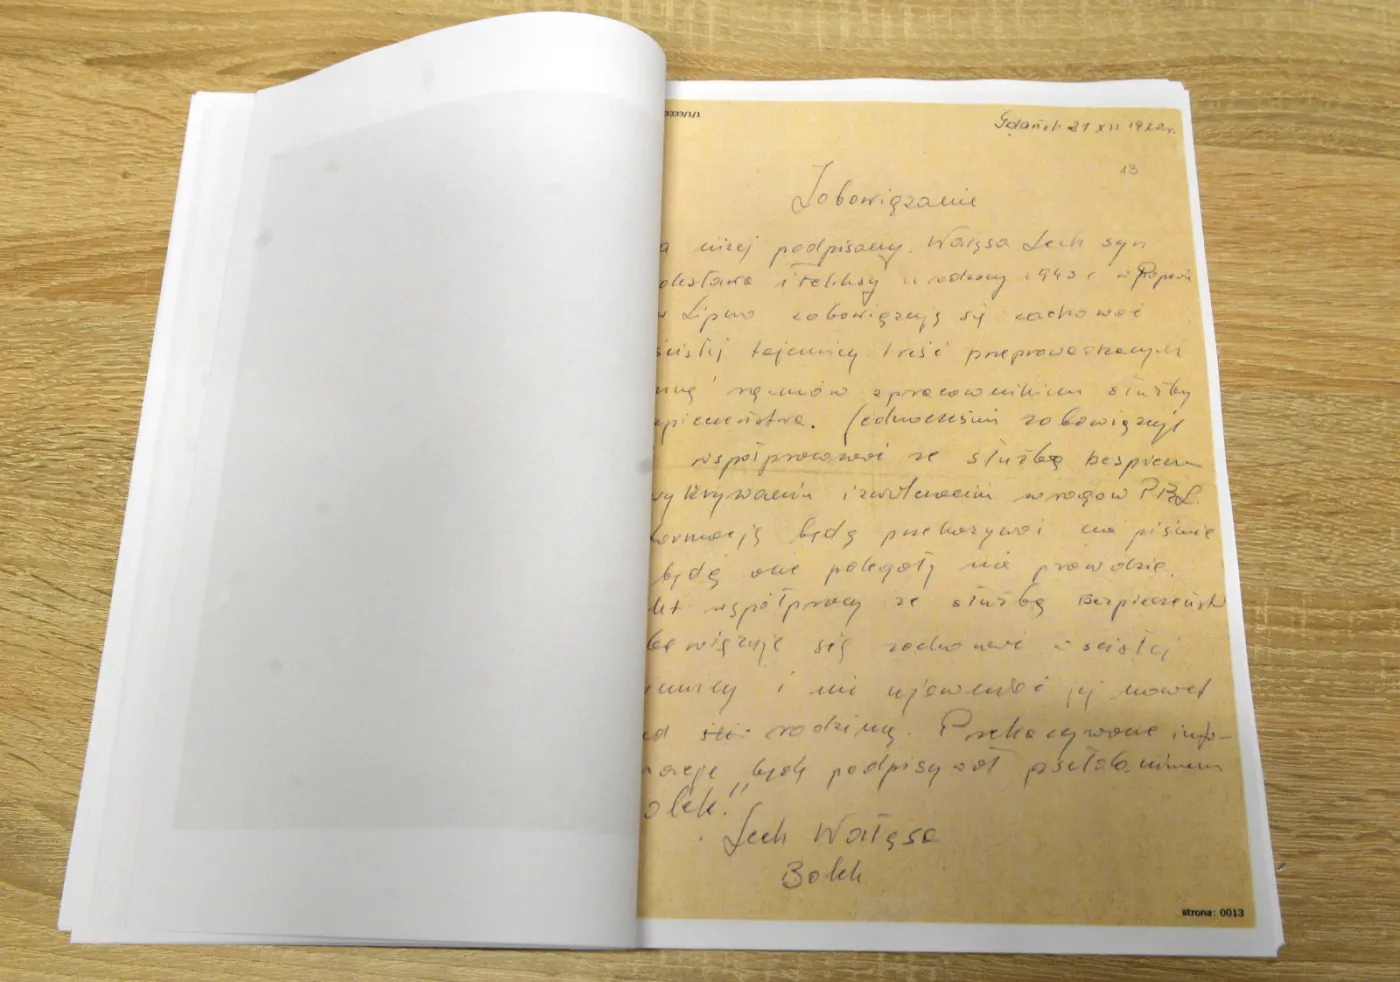 0333/1/1
Gdańsk 21 XII 1970 r.
13
Zobowiązanie
a niżej podpisany Wałęsa Lech syn
olesława i Feliksy urodzony 1943 r. w
w Lipno zobowiązuję się zachować
ścisłej tajemnicy treść przeprowadzanych
mną rozmów z pracownikiem służby
pieczeństwa. Jednocześnie zobowiązuje
współpracować ze służbą bezpiecz
wykrywaniu i zwalczaniu wrogów PRL.
formację będę przekazywać na piśmie
będą one polegały na prawdzie.
kt współpracy ze służbą Bezpieczeństw
bowiązuje się zachować w ścisłej
jemnicy i nie ujawniać jej nawet
ed rodziną. Przekazywane info-
macje będę podpisywał pseudonimem
olek."
Lech Wałęsa
Bolek
strona: 0013